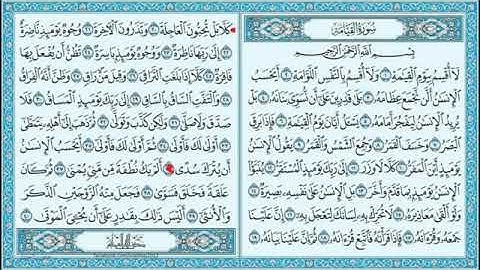 سُورَةُ القِيَامَةِ
بِسْمِ اللَّهِ الرَّحْمَٰنِ الرَّحِيمِ
لَا أُقْسِمُ بِيَوْمِ الْقِيَٰمَةِ ١ وَلَا أُقْسِمُ بِالنَّفْسِ اللَّوَّامَةِ ٢ أَيَحْسَبُ
الْإِنسَٰنُ أَلَّن نَّجْمَعَ عِظَامَهُ ٣ بَلَىٰ قَٰدِرِينَ عَلَىٰ أَن نُّسَوِّيَ بَنَانَهُ ٤ بَلْ
يُرِيدُ الْإِنسَٰنُ لِيَفْجُرَ أَمَامَهُ ٥ يَسْـَٔلُ أَيَّانَ يَوْمُ الْقِيَٰمَةِ ٦ فَإِذَا بَرِقَ
الْبَصَرُ ٧ وَخَسَفَ الْقَمَرُ ٨ وَجُمِعَ الشَّمْسُ وَالْقَمَرُ ٩ يَقُولُ الْإِنسَٰنُ
يَوْمَئِذٍ أَيْنَ الْمَفَرُّ ١٠ كَلَّا لَا وَزَرَ ١١ إِلَىٰ رَبِّكَ يَوْمَئِذٍ الْمُسْتَقَرُّ ١٢ يُنَبَّؤُا
الْإِنسَٰنُ يَوْمَئِذٍ بِمَا قَدَّمَ وَأَخَّرَ ١٣ بَلِ الْإِنسَٰنُ عَلَىٰ نَفْسِهِ بَصِيرَةٌ ١٤
وَلَوْ أَلْقَىٰ مَعَاذِيرَهُ ١٥ لَا تُحَرِّكْ بِهِ لِسَانَكَ لِتَعْجَلَ بِهِ ١٦ إِنَّ عَلَيْنَا
جَمْعَهُ وَقُرْءَانَهُ ١٧ فَإِذَا قَرَأْنَٰهُ فَاتَّبِعْ قُرْءَانَهُ ١٨ ثُمَّ إِنَّ عَلَيْنَا بَيَانَهُ ١٩
كَلَّا بَلْ تُحِبُّونَ الْعَاجِلَةَ ٢٠ وَتَذَرُونَ الْءَاخِرَةَ ٢١ وُجُوهٌ يَوْمَئِذٍ نَّاضِرَةٌ
٢٢ إِلَىٰ رَبِّهَا نَاظِرَةٌ ٢٣ وَوُجُوهٌ يَوْمَئِذٍ بَاسِرَةٌ ٢٤ تَظُنُّ أَن يُفْعَلَ بِهَا
فَاقِرَةٌ ٢٥ كَلَّا إِذَا بَلَغَتِ التَّرَاقِيَ ٢٦ وَقِيلَ مَنْ رَاقٍ ٢٧ وَظَنَّ أَنَّهُ الْفِرَاقُ
٢٨ وَالْتَفَّتِ السَّاقُ بِالسَّاقِ ٢٩ إِلَىٰ رَبِّكَ يَوْمَئِذٍ الْمَسَاقُ ٣٠ فَلَا
صَدَّقَ وَلَا صَلَّىٰ ٣١ وَلَٰكِن كَذَّبَ وَتَوَلَّىٰ ٣٢ ثُمَّ ذَهَبَ إِلَىٰ أَهْلِهِ يَتَمَطَّىٰ
٣٣ أَوْلَىٰ لَكَ فَأَوْلَىٰ ٣٤ ثُمَّ أَوْلَىٰ لَكَ فَأَوْلَىٰ ٣٥ أَيَحْسَبُ الْإِنسَٰنُ
أَن يُتْرَكَ سُدًى ٣٦ أَلَمْ يَكُ نُطْفَةً مِّن مَّنِيٍّ يُمْنَىٰ ٣٧ ثُمَّ كَانَ
عَلَقَةً فَخَلَقَ فَسَوَّىٰ ٣٨ فَجَعَلَ مِنْهُ الزَّوْجَيْنِ الذَّكَرَ
وَالْأُنثَىٰ ٣٩ أَلَيْسَ ذَٰلِكَ بِقَٰدِرٍ عَلَىٰ أَن يُحْۦِيَ الْمَوْتَىٰ ٤٠